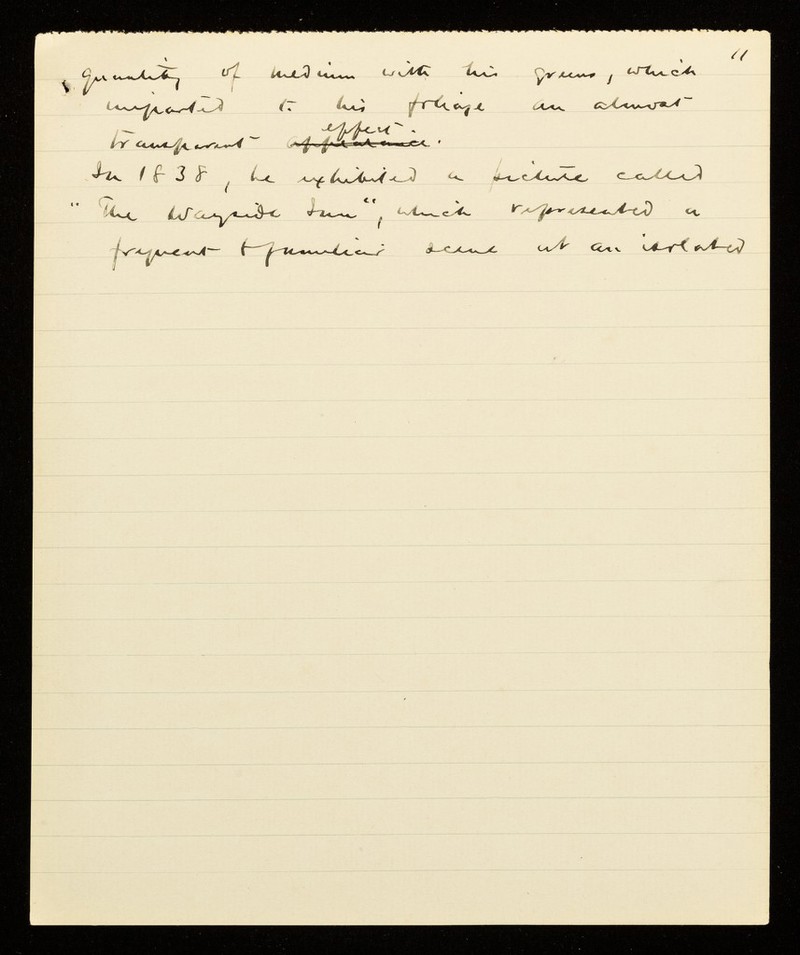 11
quantity of medium with his greens, which
imparted to his foliage an almost
effect
transparent appearance.
In 1838, he exhibited a picture called
"The Wayside Inn", which represented a
frequent & familiar scene at an isolated